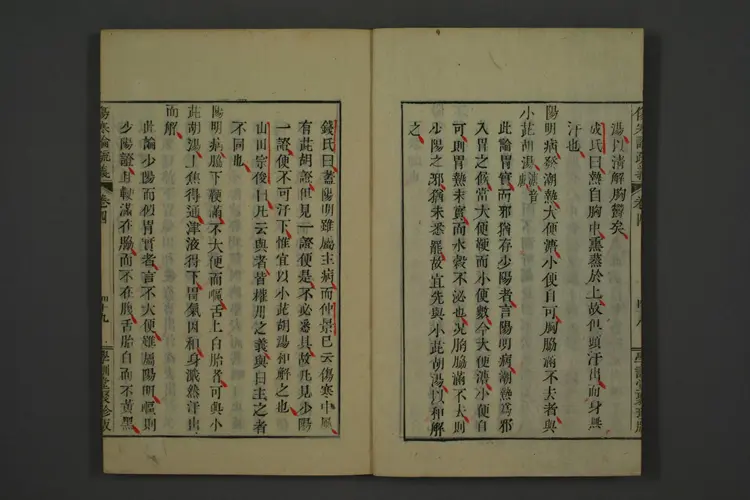 湯以清解胸鬱矣
成氏曰熱自胸中熏蒸於上故但頭汗出而身無
汗也
陽明病發潮熱大便溏小便自可胸脇滿不去者與
小茈胡湯
此論胃實而邪猶存少陽者言陽明病潮熱爲邪
入胃之候當大便鞕而小便數今大便溏小便自
可則胃熱未實而水穀不泌也況胸脇滿不去則
少陽之邪猶未悉罷故宜先與小茈胡湯以和解
之
傷寒論疏義 卷四
錢氏曰蓋陽明雖屬主病而仲景已云傷寒中風
有茈胡證但見一證便是不必悉具故凡見少陽
一證便不可汗下惟宜以小茈胡湯和解之也
山田宗俊曰凡云與者皆權用之義與曰主之者
不同也
陽明病脇下鞕滿不大便而嘔舌上白胎者可與小
茈胡湯上焦得通津液得下胃氣因和身濈然汗出
而解
此論少陽而似胃實者言不大便雖屬陽明嘔則
少陽證且鞕滿在脇而不在腹舌胎白而不黃黑
傷寒論疏義 卷四 四十九 學訓堂聚珍版